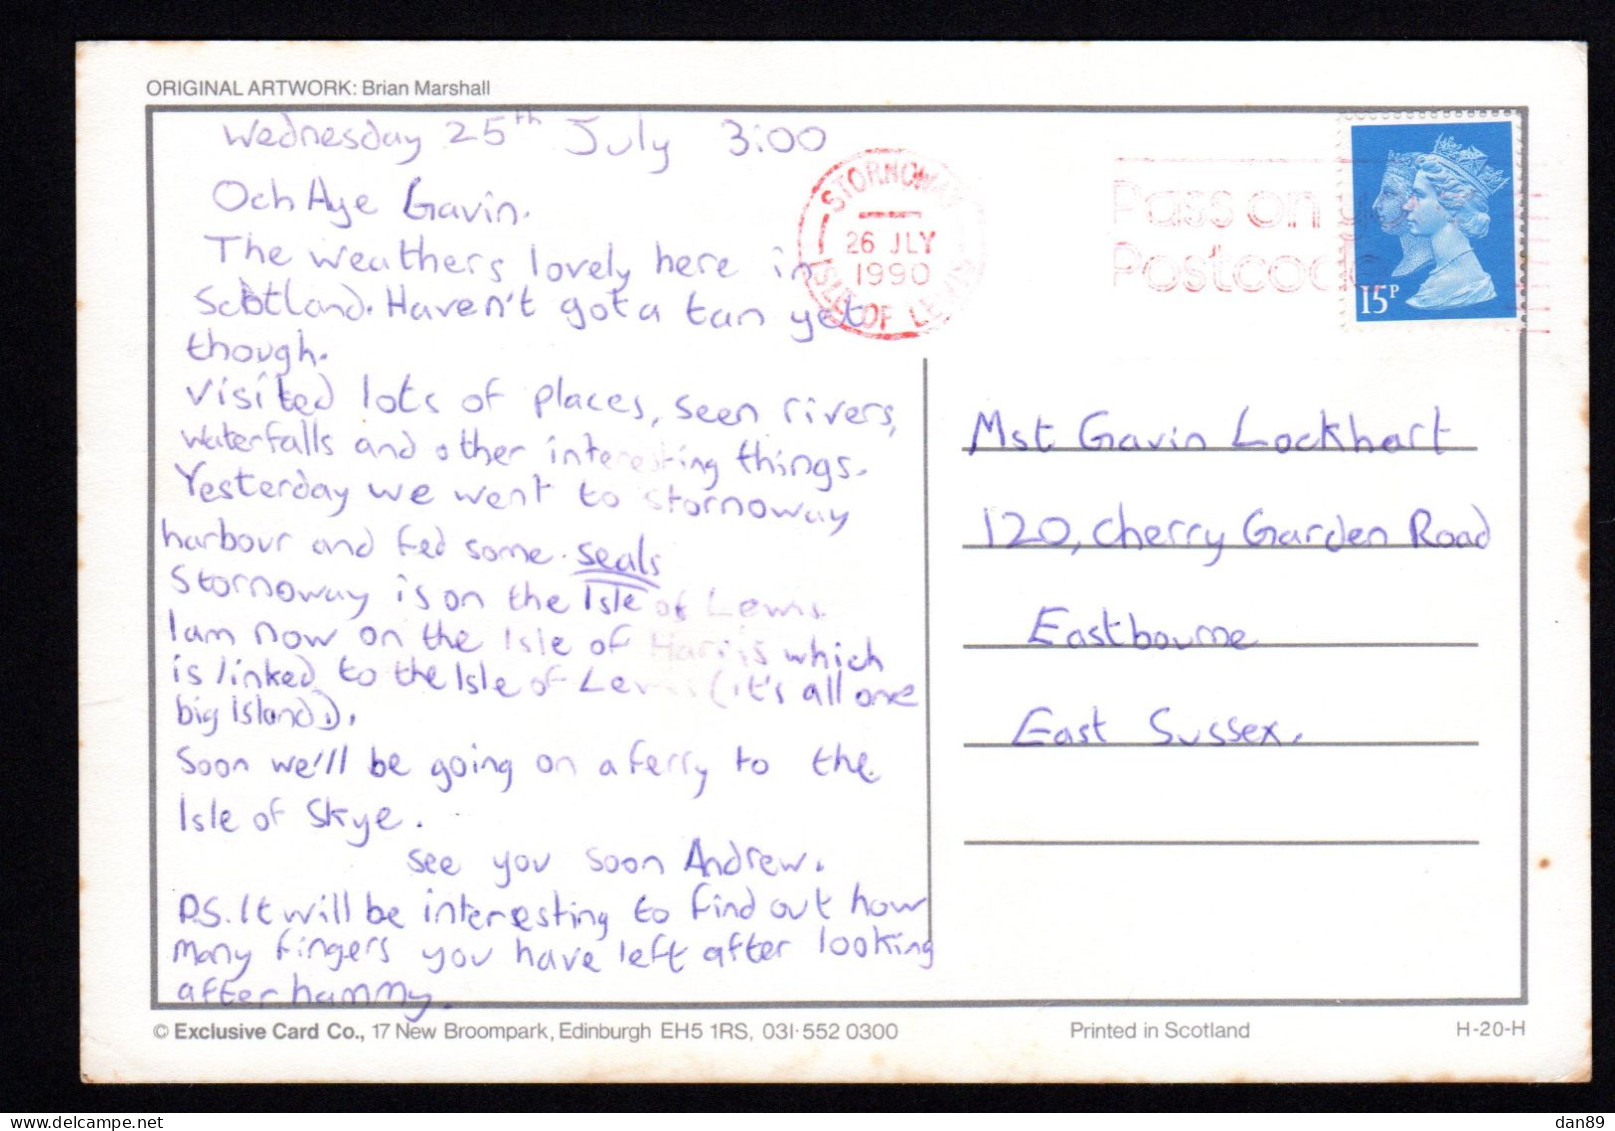 ORIGINAL ARTWORK: Brian Marshall
Wednesday 25th July 3:00
Och Aye Gavin.
The weathers lovely here in
Scotland. Haven't got a tan yet
though.
Visited lots of places, seen rivers,
waterfalls and other interesting things.
Yesterday we went to Stornoway
harbour and fed some seals
Stornoway is on the Isle of Lewis.
I am now on the Isle of Harris which
is linked to the Isle of Lewis (it's all one
big island.).
Soon we'll be going on a ferry to the
Isle of Skye.
see you soon Andrew.
P.S. It will be interesting to find out how
many fingers you have left after looking
after hammy.
STORNOWAY
26 JLY
1990
ISLE OF LEWIS
Pass on yo
Postcode
15P
Mst Gavin Lockhart
120, Cherry Garden Road
Eastbourne
East Sussex.
© Exclusive Card Co., 17 New Broompark, Edinburgh EH5 1RS, 031·552 0300
Printed in Scotland
H-20-H
dan89